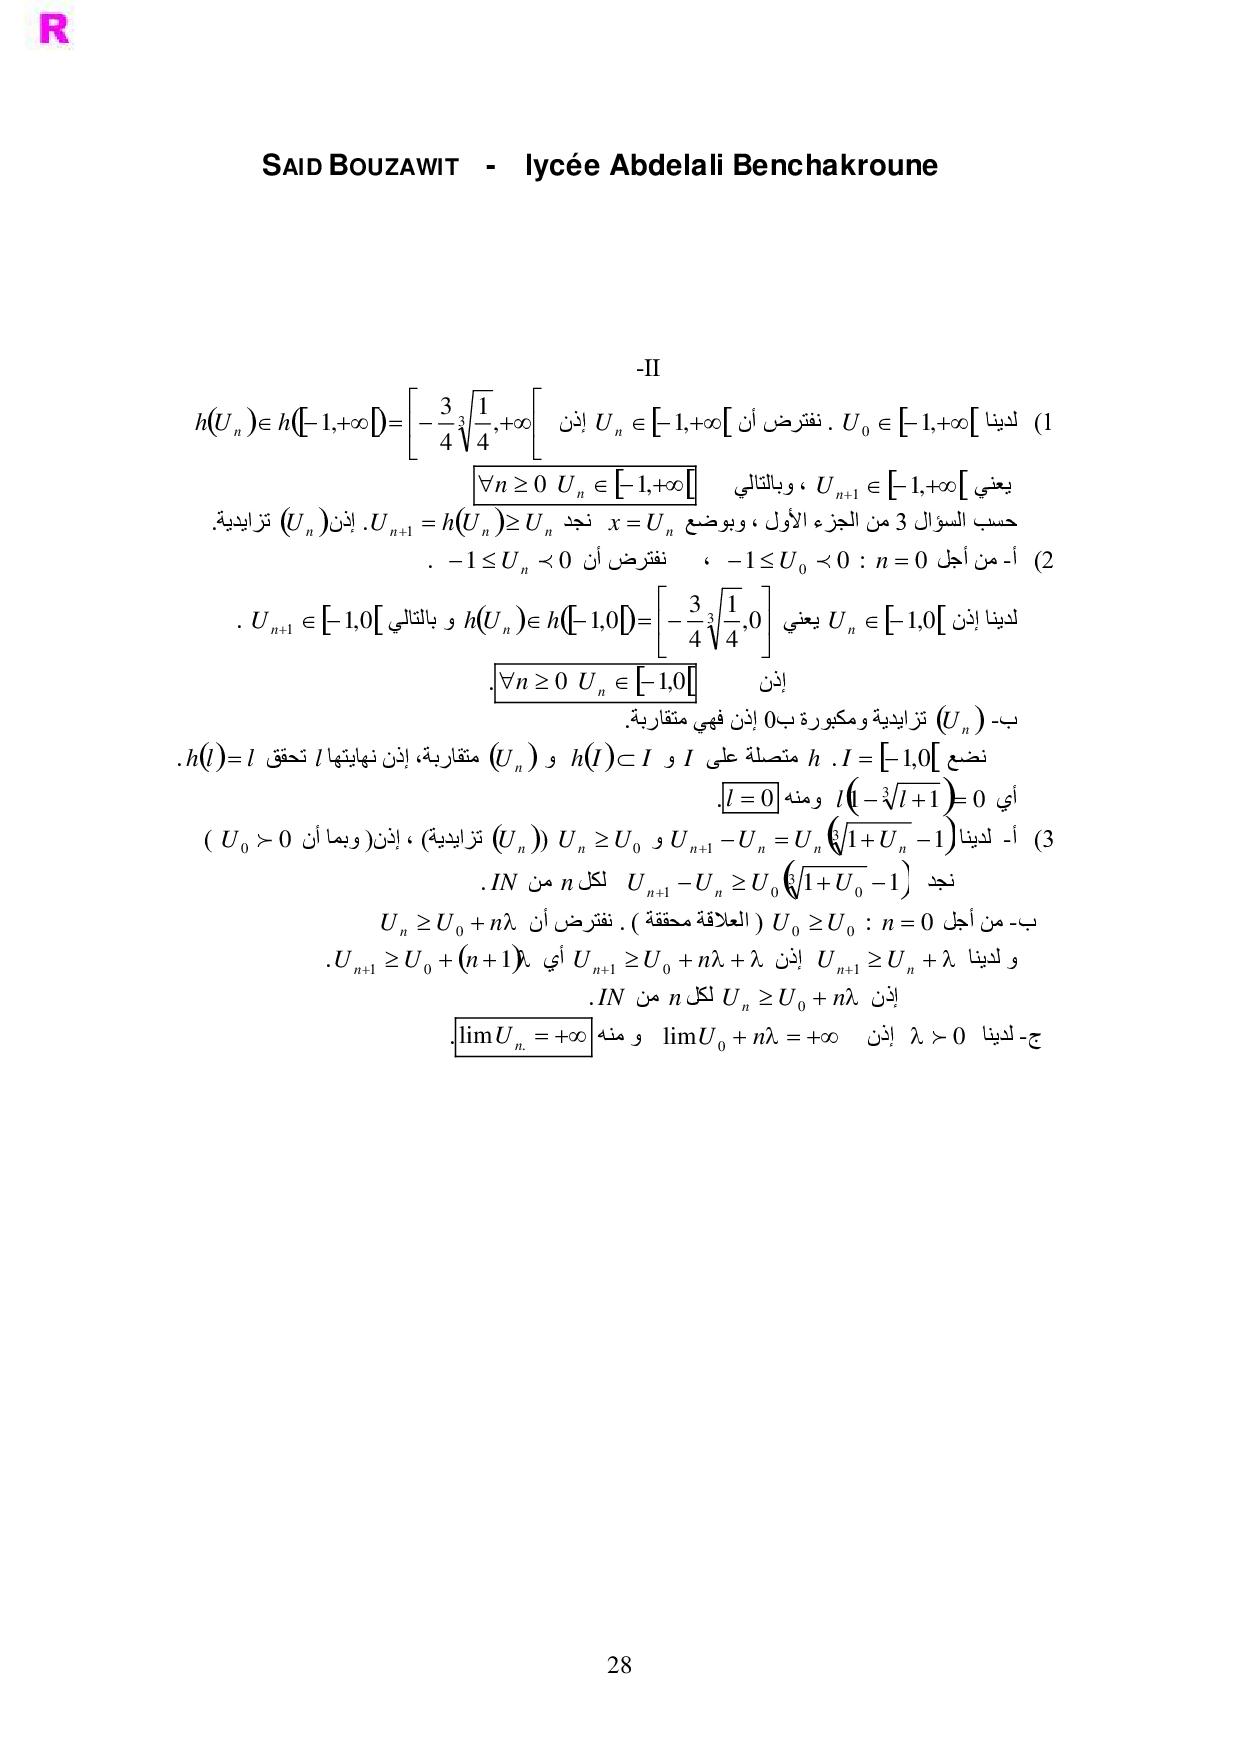 R
SAID BOUZAWIT - lycée Abdelali Benchakroune
II-
1) لدينا U_0 ∈ [−1,+∞[ . نفترض أن U_n ∈ [−1,+∞[ إذن h(U_n) ∈ h([−1,+∞[) = [−\frac{3}{4}\sqrt[3]{\frac{1}{4}},+∞[
يعني U_{n+1} ∈ [−1,+∞[ ، وبالتالي ∀n ≥ 0 U_n ∈ [−1,+∞[
حسب السؤال 3 من الجزء الأول ، وبوضع x = U_n نجد U_{n+1} = h(U_n) ≥ U_n. إذن (U_n) تزايدية.
2) أ- من أجل n = 0 : −1 ≤ U_0 ≺ 0 ، نفترض أن −1 ≤ U_n ≺ 0 .
لدينا إذن U_n ∈ [−1,0[ يعني h(U_n) ∈ h([−1,0[) = [−\frac{3}{4}\sqrt[3]{\frac{1}{4}},0] و بالتالي U_{n+1} ∈ [−1,0[ .
إذن ∀n ≥ 0 U_n ∈ [−1,0[.
ب- (U_n) تزايدية ومكبورة ب0 إذن فهي متقاربة.
نضع I = [−1,0[ . h متصلة على I و h(I) ⊂ I و (U_n) متقاربة، إذن نهايتها l تحقق h(l) = l .
أي l(1 − \sqrt[3]{l+1}) = 0 ومنه l = 0.
3) أ- لدينا U_{n+1} − U_n = U_n(\sqrt[3]{1+U_n} − 1) و U_n ≥ U_0 ((U_n) تزايدية) ، إذن( وبما أن U_0 ≻ 0 )
نجد U_{n+1} − U_n ≥ U_0(\sqrt[3]{1+U_0} − 1) لكل n من IN .
ب- من أجل n = 0 : U_0 ≥ U_0 ( العلاقة محققة ) . نفترض أن U_n ≥ U_0 + nλ
و لدينا U_{n+1} ≥ U_n + λ إذن U_{n+1} ≥ U_0 + nλ + λ أي U_{n+1} ≥ U_0 + (n+1)λ.
إذن U_n ≥ U_0 + nλ لكل n من IN .
ج- لدينا λ ≻ 0 إذن lim U_0 + nλ = +∞ و منه lim U_{n.} = +∞.
28